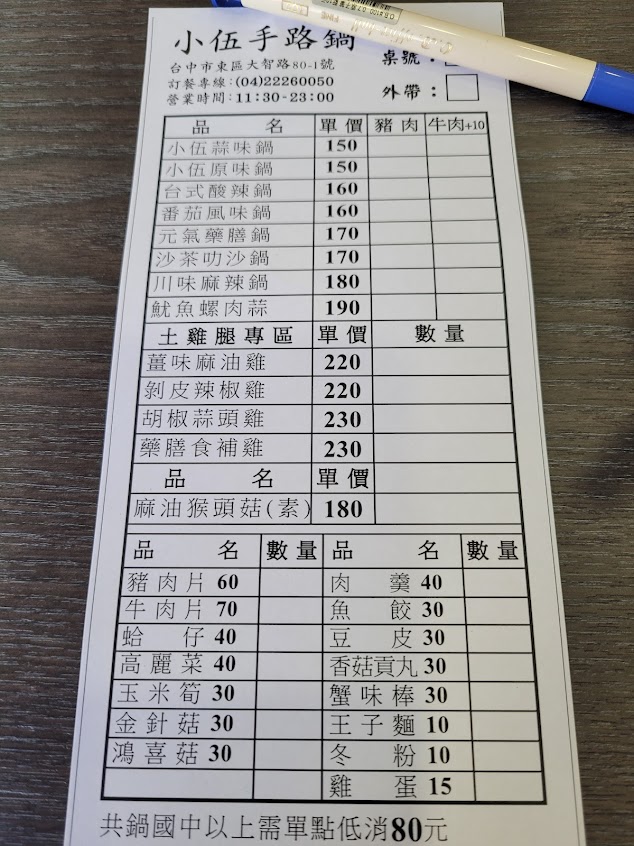 小伍手路鍋
台中市東區大智路80-1號
桌號：
訂餐專線：(04)22260050
營業時間：11:30-23:00
外帶：
品名 單價 豬肉 牛肉+10
小伍蒜味鍋 150
小伍原味鍋 150
台式酸辣鍋 160
番茄風味鍋 160
元氣藥膳鍋 170
沙茶叻沙鍋 170
川味麻辣鍋 180
魷魚螺肉蒜 190
土雞腿專區 單價 數量
薑味麻油雞 220
剝皮辣椒雞 220
胡椒蒜頭雞 230
藥膳食補雞 230
品名 單價
麻油猴頭菇(素) 180
品名 數量 品名 數量
豬肉片 60 肉羹 40
牛肉片 70 魚餃 30
蛤仔 40 豆皮 30
高麗菜 40 香菇貢丸 30
玉米筍 30 蟹味棒 30
金針菇 30 王子麵 10
鴻喜菇 30 冬粉 10
雞蛋 15
共鍋國中以上需單點低消80元